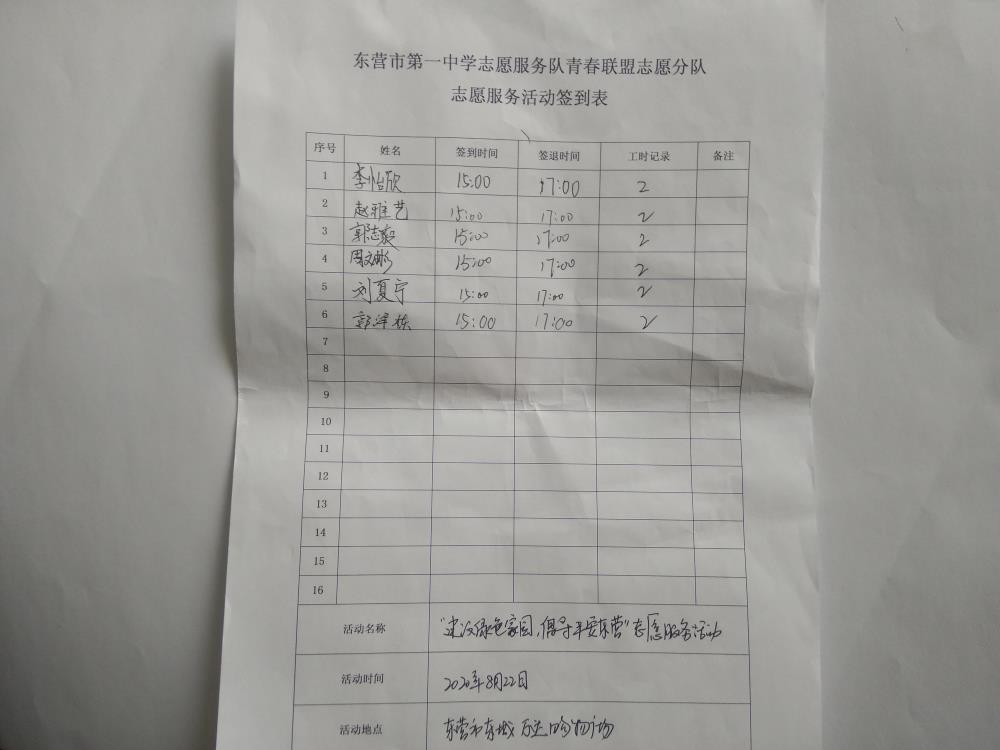 东营市第一中学志愿服务队青春联盟志愿分队
志愿服务活动签到表
序号 姓名 签到时间 签退时间 工时记录 备注
1 李怡欣 15:00 17:00 2
2 赵雅艺 15:00 17:00 2
3 郭志毅 15:00 17:00 2
4 周文彬 15:00 17:00 2
5 刘夏宁 15:00 17:00 2
6 郭泽栋 15:00 17:00 2
7
8
9
10
11
12
13
14
15
16
活动名称 "建设绿色家园,倡导平安东营"志愿服务活动
活动时间 2020年8月22日
活动地点 东营市东城万达购物广场